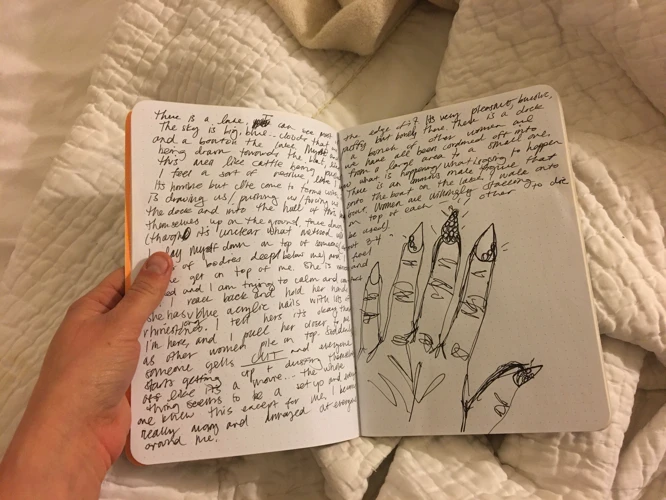 there is a lake. I can see most the edge of it. Its very pleasant, bucolic,
The sky is big, blue.. that puffy but lovely there. There is a dock
and a boat on the lake. Myself and a bunch of other women are
being drawn towards the boat, like we have all been cordoned off into
this area like cattle being from a large area to a small one.
I feel a sort of passive like I what is happening/what is going to happen
Its horrible but come to terms with There is an ominous male figure that
is drawing us/ us/ forcing us onto the boat on the lake. I walk onto
the dock and into the hull of this boat. Women are willingly stacking
themselves up on the ground, three deep on top of each other to die
(though it's unclear what method will be used)
I lay myself down on top of someone 3-4
of bodies deep below me) and feel
get on top of me. She is and
and I am trying to calm and
I reach back and hold her hand
she has long blue acrylic nails with lots of
rhinestones. I tell hers it's okay that
I'm here, and I pull her closer to me
as other women pile on top. Suddenly
someone yells CUT and everyone
starts getting up + dusting themselves
off like its a movie... the whole
thing seems to be a set up and
knew this except for me. I become
really angry and at everyone
around me.